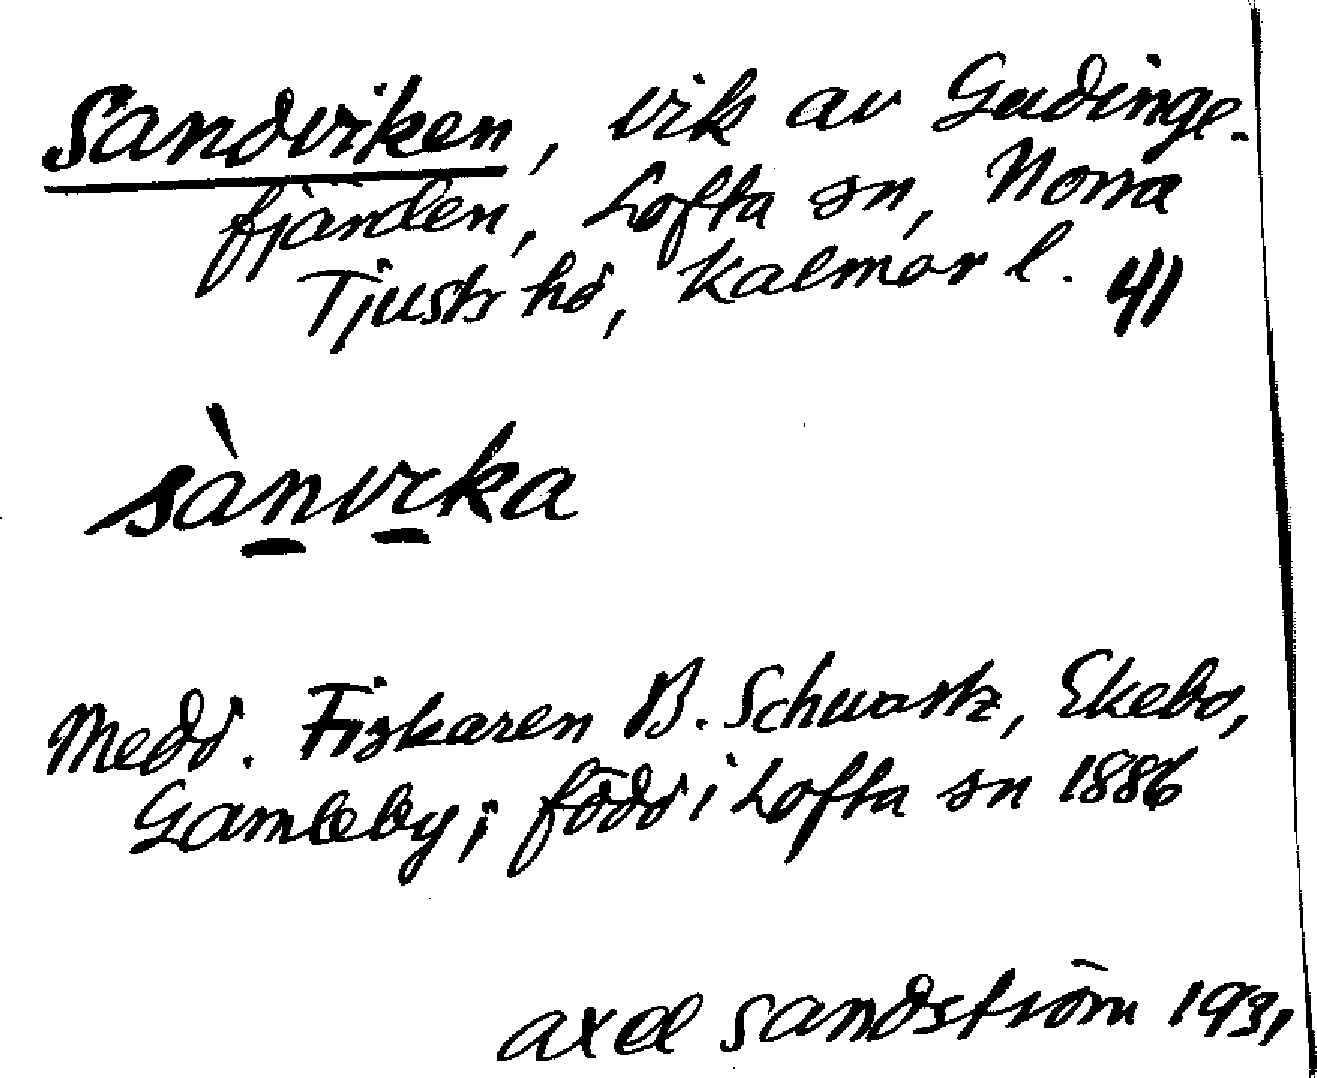 Sandviken, vik av Gudinge-
fjärden, Lofta sn, Norra
Tjusts hd, Kalmar l. 41
sànvika
Medd. Fiskaren B. Schwartz, Ekebo,
Gamleby; född i Lofta sn 1886
Axel Sandström 1931